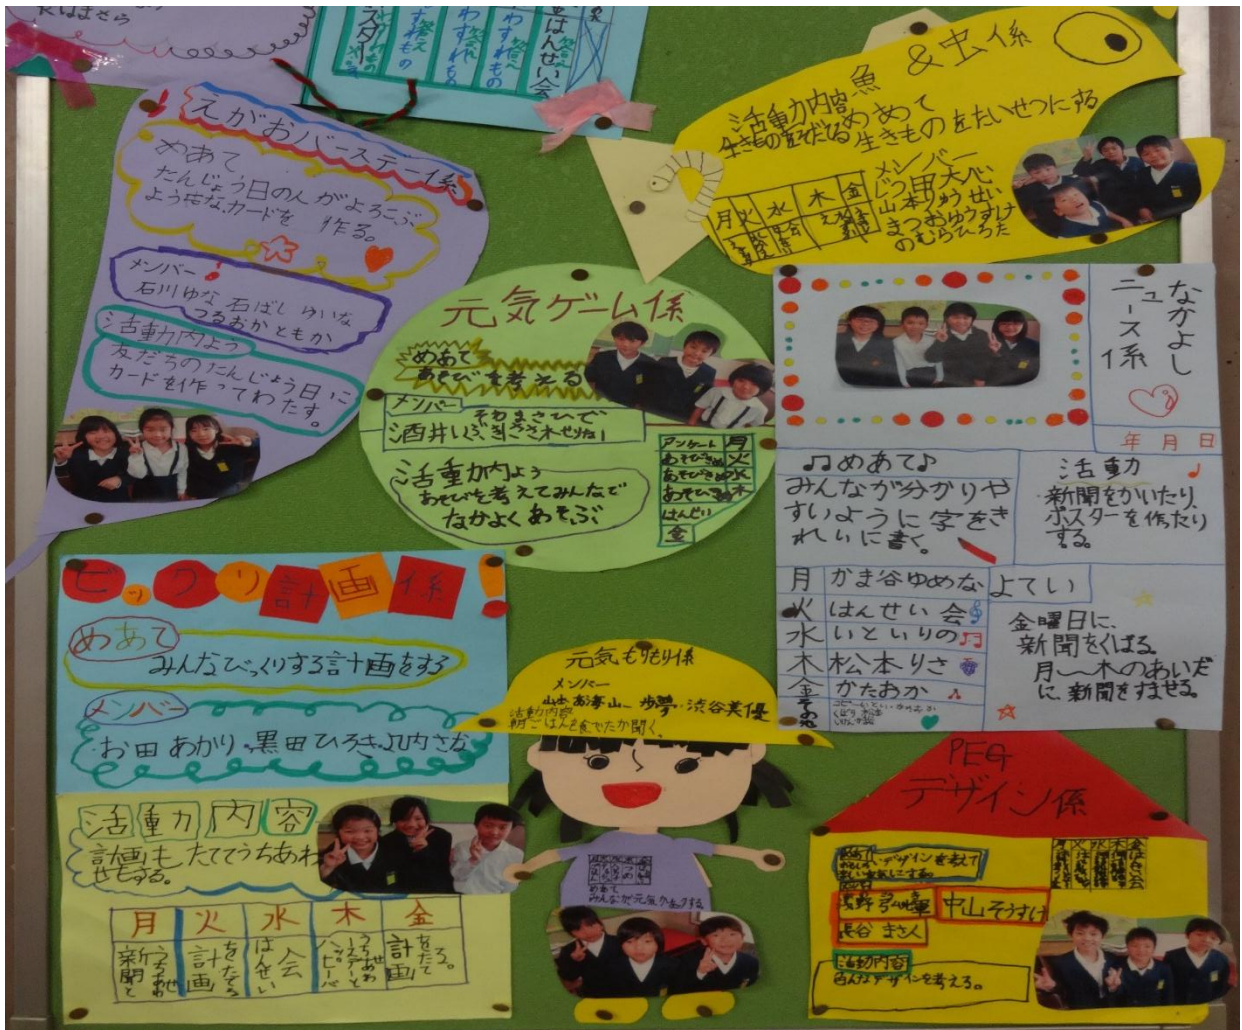 はんせい会
わすれもの
わすれもの
えがおバースデー係
めあて
たんじょう日の人がよろこぶ
ような、カードを作る。
メンバー
石川ゆな 石ばし ゆいな
つるおかともか
活動内よう
友だちのたんじょう日に
カードを作ってわたす。
魚&虫係
活動内容
めあて
生きものをたいせつにする
メンバー
山本りゅうせい
まつおゆうすけ
のむらひろた
月 火 水 木 金
元気ゲーム係
めあて
あそびを考える
メンバー
酒井いぶき
活動内よう
あそびを考えてみんなで
なかよくあそぶ
アンケート 月
あそびぎめ 火
あそびぎめ 水
あそび 木
はんせい
金
なかよし
ニュース係
年 月 日
♫めあて♪
みんなが分かりや
すいように字をき
れいに書く。
活動
新聞をかいたり、
ポスターを作ったり
する。
月 かま谷ゆめな
火 はんせい会
水 いといりの
木 松本りさ
金 かたおか
その他
よてい
金曜日に、
新聞をくばる。
月〜木のあいだ
に、新聞をすませる。
ビックリ計画係!
めあて
みんなびっくりする計画をする
メンバー
お田あかり。黒田ひろき。
活動内容
計画も たててうちあわ
せもする。
月 火 水 木 金
新聞と
うちあわせ
計画
をたてる
はんせい
会
計画
をたて
る。
元気もりもり係
メンバー
歩夢・渋谷美優
活動内容
朝ごはんを食べたか聞く。
めあて
PEG
デザイン係
デザインを考えて
中山そうすけ
長谷 まさと
活動内容
色んなデザインを考える。